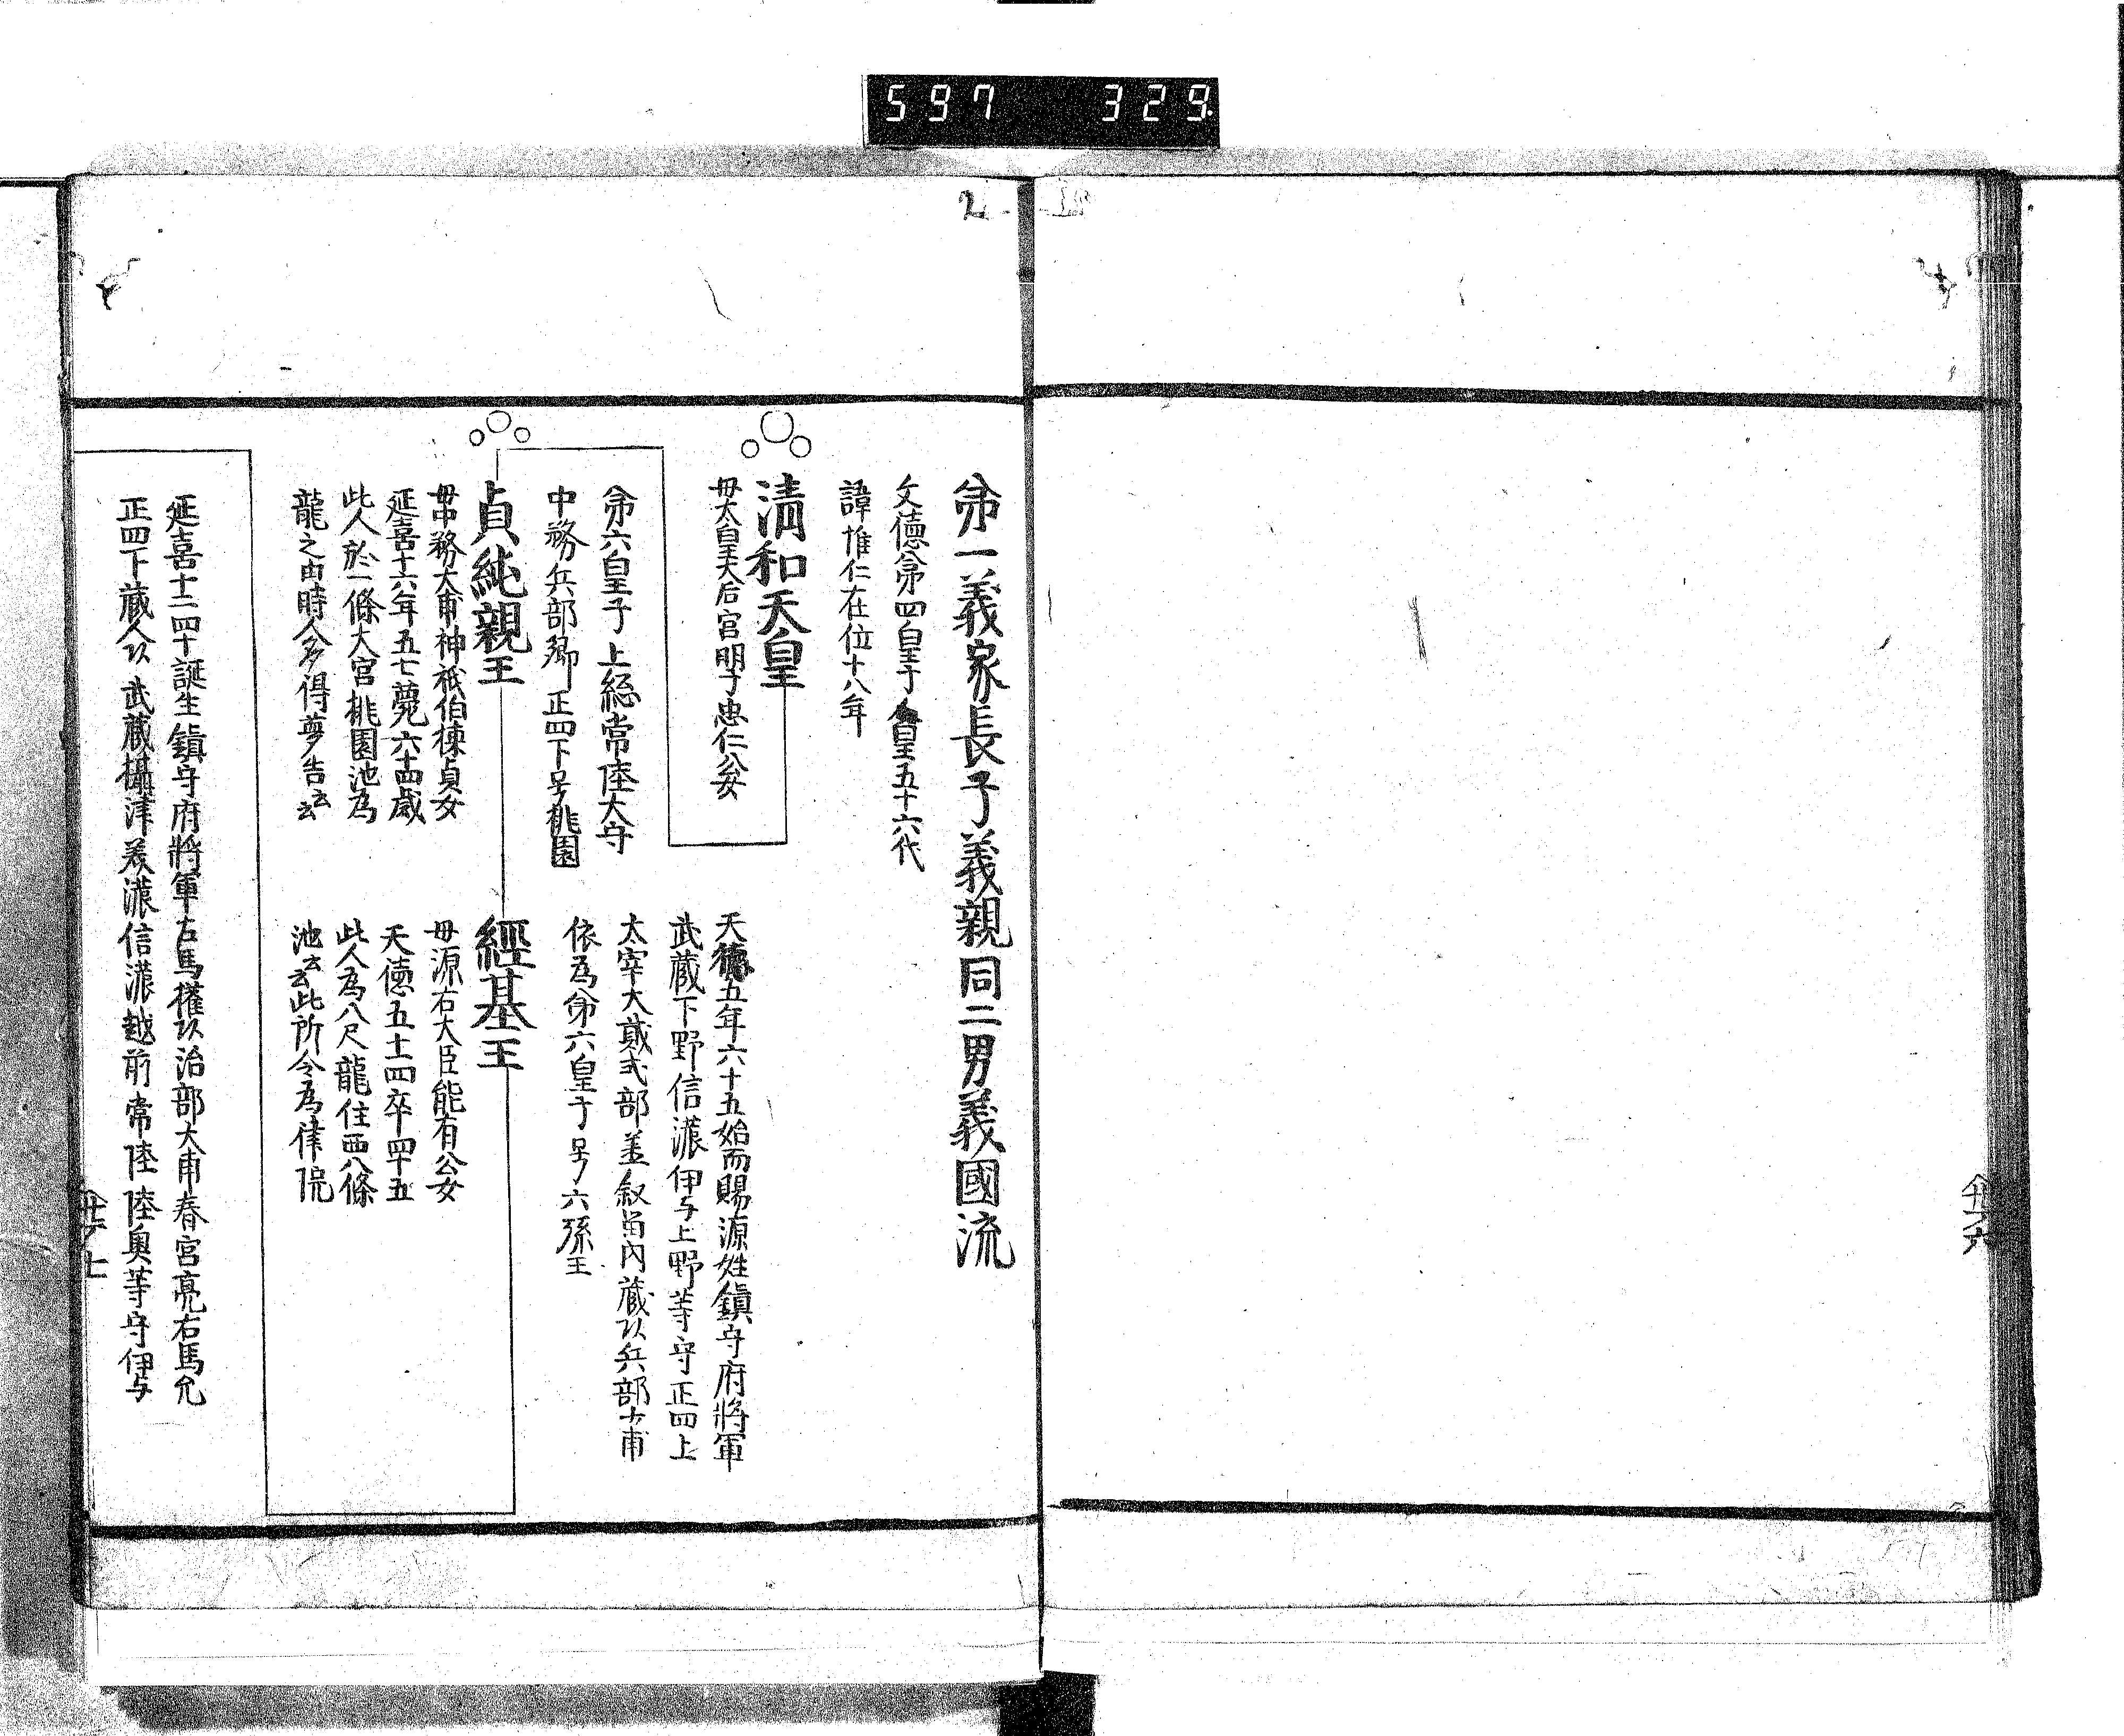 597 329
2
第一義家長子義親同二男義國流
文德第四皇子人皇五十六代
諱惟仁在位十八年
清和天皇
母太皇大后宮明子忠仁公女
第六皇子上総常陸大守
中務兵部卿正四下号桃園
貞純親王
母中務大甫神祇伯棟貞女
延喜十六年五七薨六十四歳
此人於一條大宮桃園池為
龍之由時人多得夢告云云
天德五年六十五始而賜源姓鎮守府將軍
武蔵下野信濃伊与上野等守正四上
太宰大貳式部並叙留内蔵以兵部少甫
依為第六皇子号六孫王
經基王
母源右大臣能有公女
天德五十一四卒四十五
此人為八尺龍住西八條
池云云此所今為律院
延喜十二四十誕生鎮守府將軍右馬權以治部大甫春宮亮右馬允
正四下蔵人以武蔵攝津美濃信濃越前常陸陸奥等守伊与